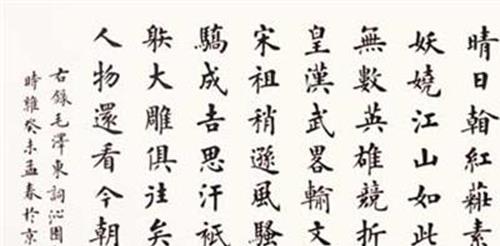 晴日翰紅素
妖嬈江山如此
無數英雄競折
皇漢武畧輸文
宋祖稍遜風騷
驕成吉思汗衹
大雕俱往矣
人物還看今朝
右錄毛澤東詞沁園
時維癸未孟春於京